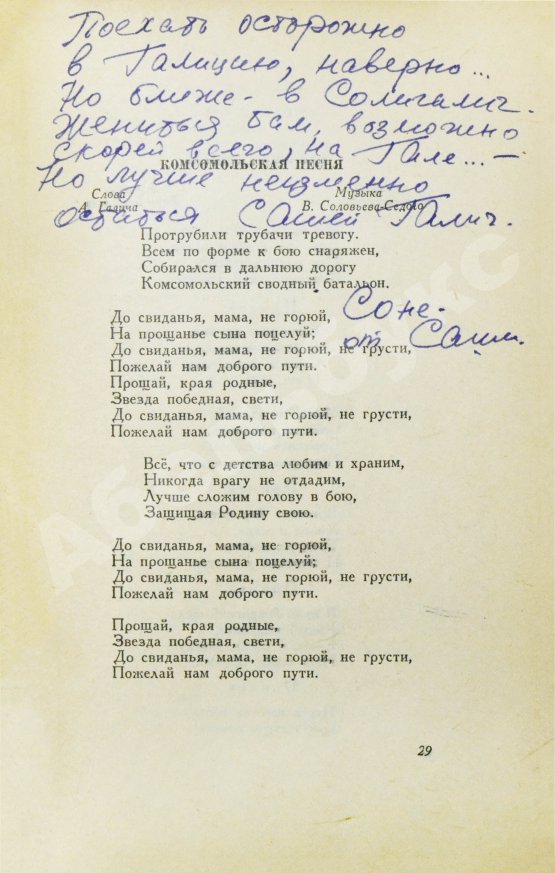 Поехать осторожно
в Галицию, наверно...
Но ближе - в Солигалич.
Жениться там, возможно
скорей всего, на Гале... -
Но лучше неизменно
остаться Сашей Галич.
КОМСОМОЛЬСКАЯ ПЕСНЯ
Слова
А. Галича
Музыка
В. Соловьева-Седого
Протрубили трубачи тревогу.
Всем по форме к бою снаряжен,
Собирался в дальнюю дорогу
Комсомольский сводный батальон.
Соне -
от Саши.
До свиданья, мама, не горюй,
На прощанье сына поцелуй;
До свиданья, мама, не горюй, не грусти,
Пожелай нам доброго пути.
Прощай, края родные,
Звезда победная, свети,
До свиданья, мама, не горюй, не грусти,
Пожелай нам доброго пути.
Всё, что с детства любим и храним,
Никогда врагу не отдадим,
Лучше сложим голову в бою,
Защищая Родину свою.
До свиданья, мама, не горюй,
На прощанье сына поцелуй;
До свиданья, мама, не горюй, не грусти,
Пожелай нам доброго пути.
Прощай, края родные,
Звезда победная, свети,
До свиданья, мама, не горюй, не грусти,
Пожелай нам доброго пути.
29